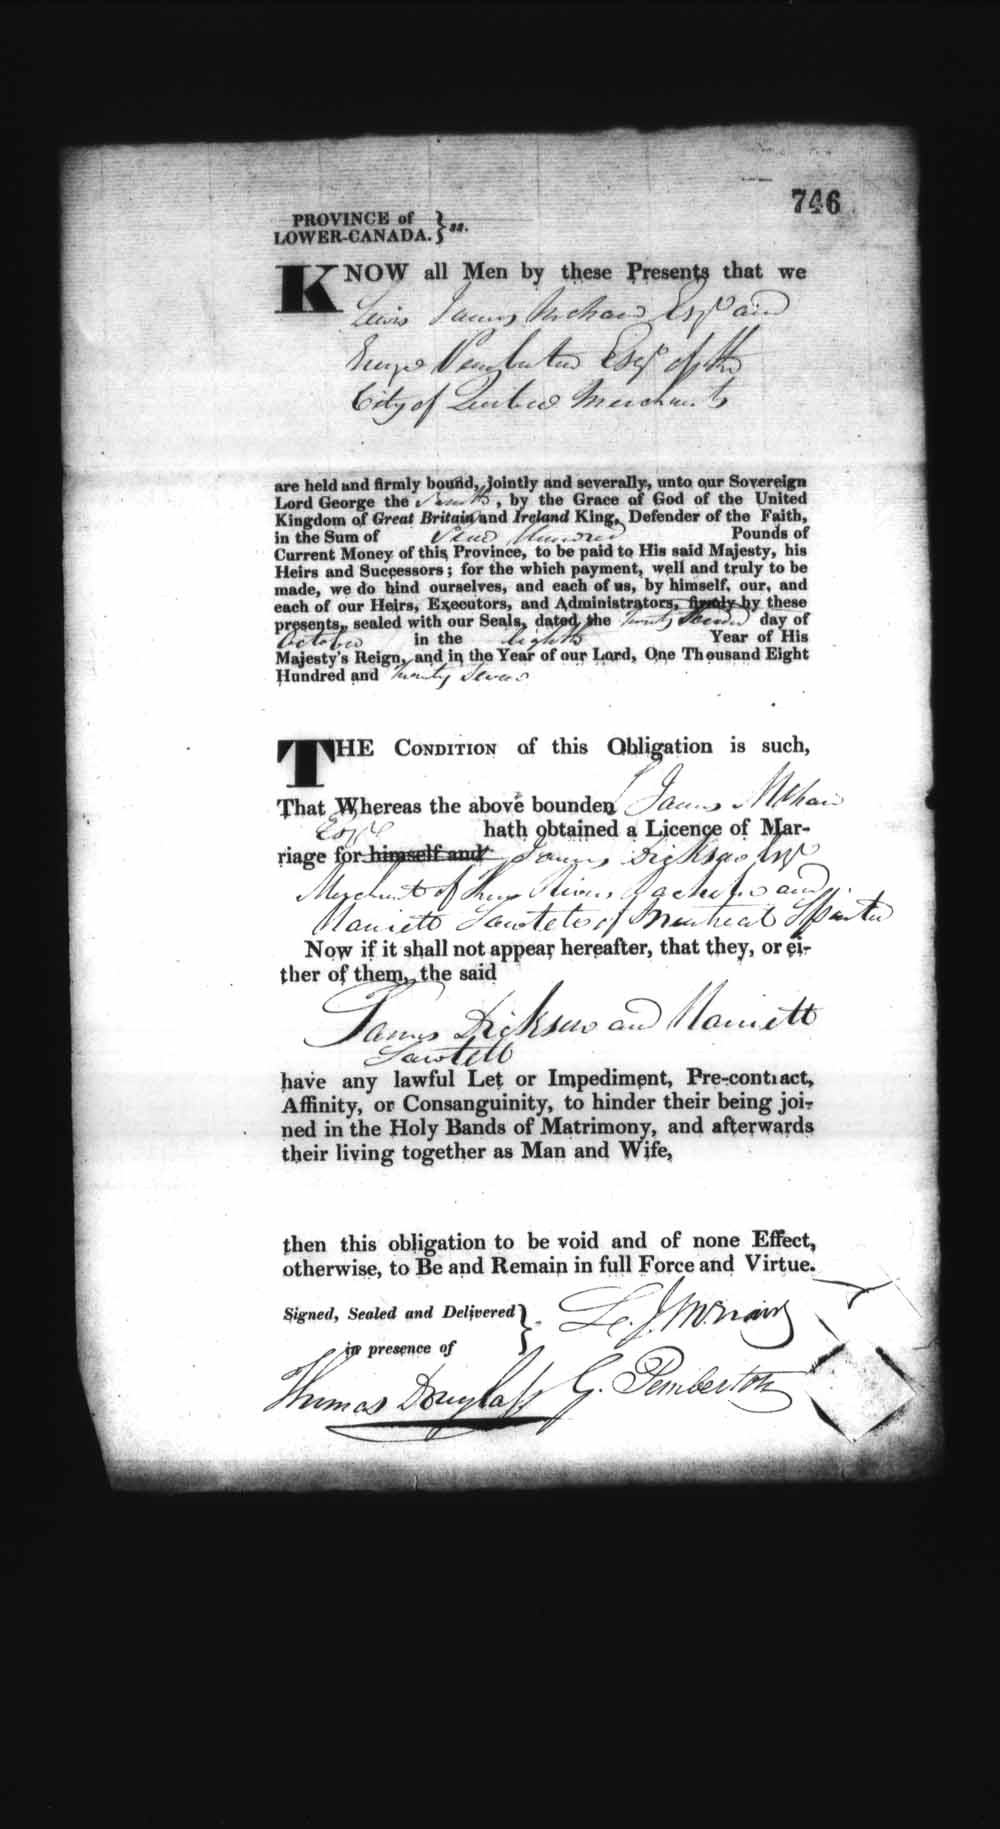 746
PROVINCE of
LOWER-CANADA. } ss.
KNOW all Men by these Presents that we
Lewis James McNair Esqr and
George Pemberton Esqr of the
City of Quebec Merchants
are held and firmly bound, jointly and severally, unto our Sovereign
Lord George the Fourth, by the Grace of God of the United
Kingdom of Great Britain and Ireland King, Defender of the Faith,
in the Sum of Hundred Pounds of
Current Money of this Province, to be paid to His said Majesty, his
Heirs and Successors; for the which payment, well and truly to be
made, we do bind ourselves, and each of us, by himself, our, and
each of our Heirs, Executors, and Administrators, firmly by these
presents, sealed with our Seals, dated the twenty day of
October in the Eighth Year of His
Majesty's Reign, and in the Year of our Lord, One Thousand Eight
Hundred and twenty Seven
THE CONDITION of this Obligation is such,
That Whereas the above bounden L James McNair
Esqr hath obtained a Licence of Mar-
riage for himself and James Dickson Esqr
Merchant of Three Rivers Bachelor and
Harriett Sawtell of Montreal Spinster
Now if it shall not appear hereafter, that they, or ei-
ther of them, the said
James Dickson and Harriett
Sawtell
have any lawful Let or Impediment, Pre-contract,
Affinity, or Consanguinity, to hinder their being joi-
ned in the Holy Bands of Matrimony, and afterwards
their living together as Man and Wife,
then this obligation to be void and of none Effect,
otherwise, to Be and Remain in full Force and Virtue.
Signed, Sealed and Delivered }
in presence of
L. J. McNair
Thomas Douglass G. Pemberton